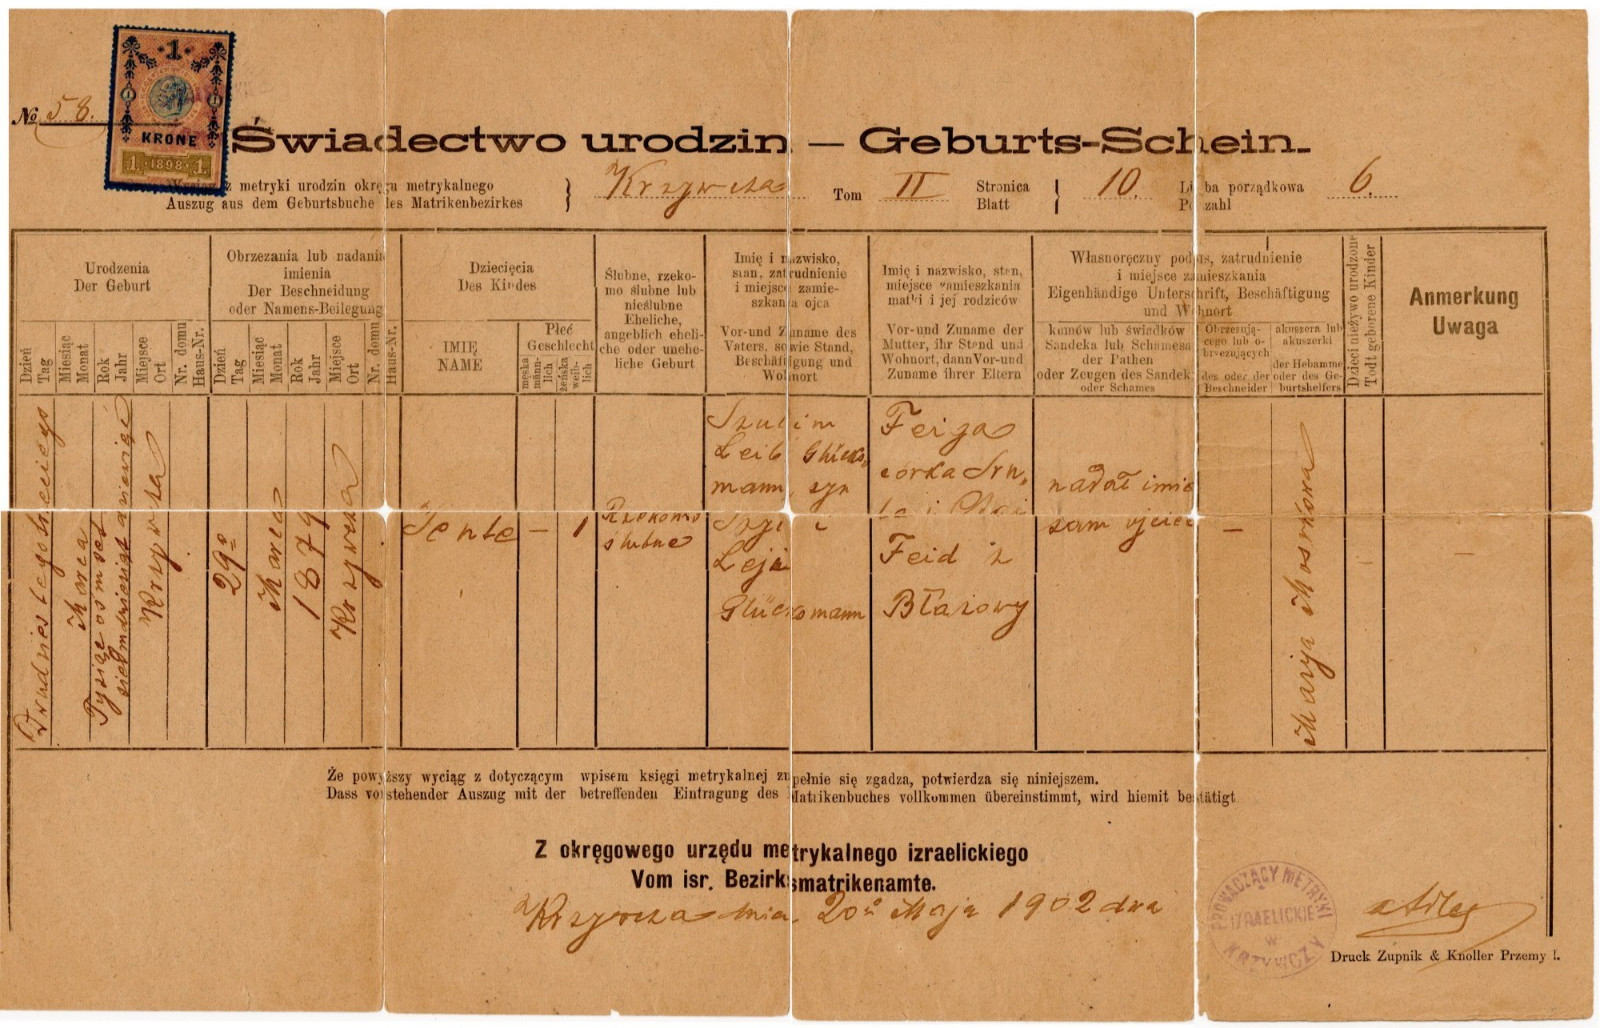 1
KRONE
1 · 1898 · 1
№ 58.
Świadectwo urodzin. — Geburts-Schein.
z metryki urodzin okręgu metrykalnego
Auszug aus dem Geburtsbuche des Matrikenbezirkes
Krzywcza
Tom II
Stronica
Blatt
10.
Liczba porządkowa
6.
Urodzenia
Der Geburt
Obrzezania lub nadania
imienia
Der Beschneidung
oder Namens-Beilegung
Dziecięcia
Des Kindes
Ślubne, rzeko-
mo ślubne lub
nieślubne
Eheliche,
angeblich eheli-
che oder unehe-
liche Geburt
Imię i nazwisko,
stan, zatrudnienie
i miejsce zamie-
szkania ojca
Vor-und Zuname des
Vaters, sowie Stand,
Beschäftigung und
Wohnort
Imię i nazwisko, stan,
miejsce zamieszkania
matki i jej rodziców
Vor-und Zuname der
Mutter, ihr Stand und
Wohnort, dann Vor-und
Zuname ihrer Eltern
Własnoręczny podpis, zatrudnienie
i miejsce zamieszkania
Eigenhändige Unterschrift, Beschäftigung
und Wohnort
kumów lub świadków
Sandeka lub Schamesa
der Pathen
oder Zeugen des Sandek
oder Schames
Obrzezują-
cego lub o-
brzezujących
des oder der
Beschneider
akuszera lub
akuszerki
der Hebamme
oder des Ge-
burtshelfers
Dzieci nieżywo urodzone
Todt geborene Kinder
Anmerkung
Uwaga
Dzień
Tag
Miesiąc
Monat
Rok
Jahr
Miejsce
Ort
Nr. domu
Haus-Nr.
Dzień
Tag
Miesiąc
Monat
Rok
Jahr
Miejsce
Ort
Nr. domu
Haus-Nr.
IMIĘ
NAME
Płeć
Geschlecht
męska
männ-
lich
żeńska
weib-
lich
Dwudziestego
Marca
Tysiąc osmset
siedmdziesiąt dziewięć
Krzywcza
29o
Marca
1879
Krzywcza
Tente — 1
Rzekomo
ślubne
Leib Glücks
mann, syn
Leji
Glücksmann
Feiga
córka
Feid z
Błażowy
nadał imię
sam ojciec
—
Marya Moskowa
—
—
Że powyższy wyciąg z dotyczącym wpisem księgi metrykalnej zupełnie się zgadza, potwierdza się niniejszem.
Dass vorstehender Auszug mit der betreffenden Eintragung des Matrikenbuches vollkommen übereinstimmt, wird hiemit bestätigt
Z okręgowego urzędu metrykalnego izraelickiego
Vom isr. Bezirksmatrikenamte.
Krzywcza dnia 20o Maja 1902 dwa
PROWADZĄCY METRYKI
IZRAELICKIE
W
KRZYWCZY
Druck Zupnik & Knoller Przemyśl.